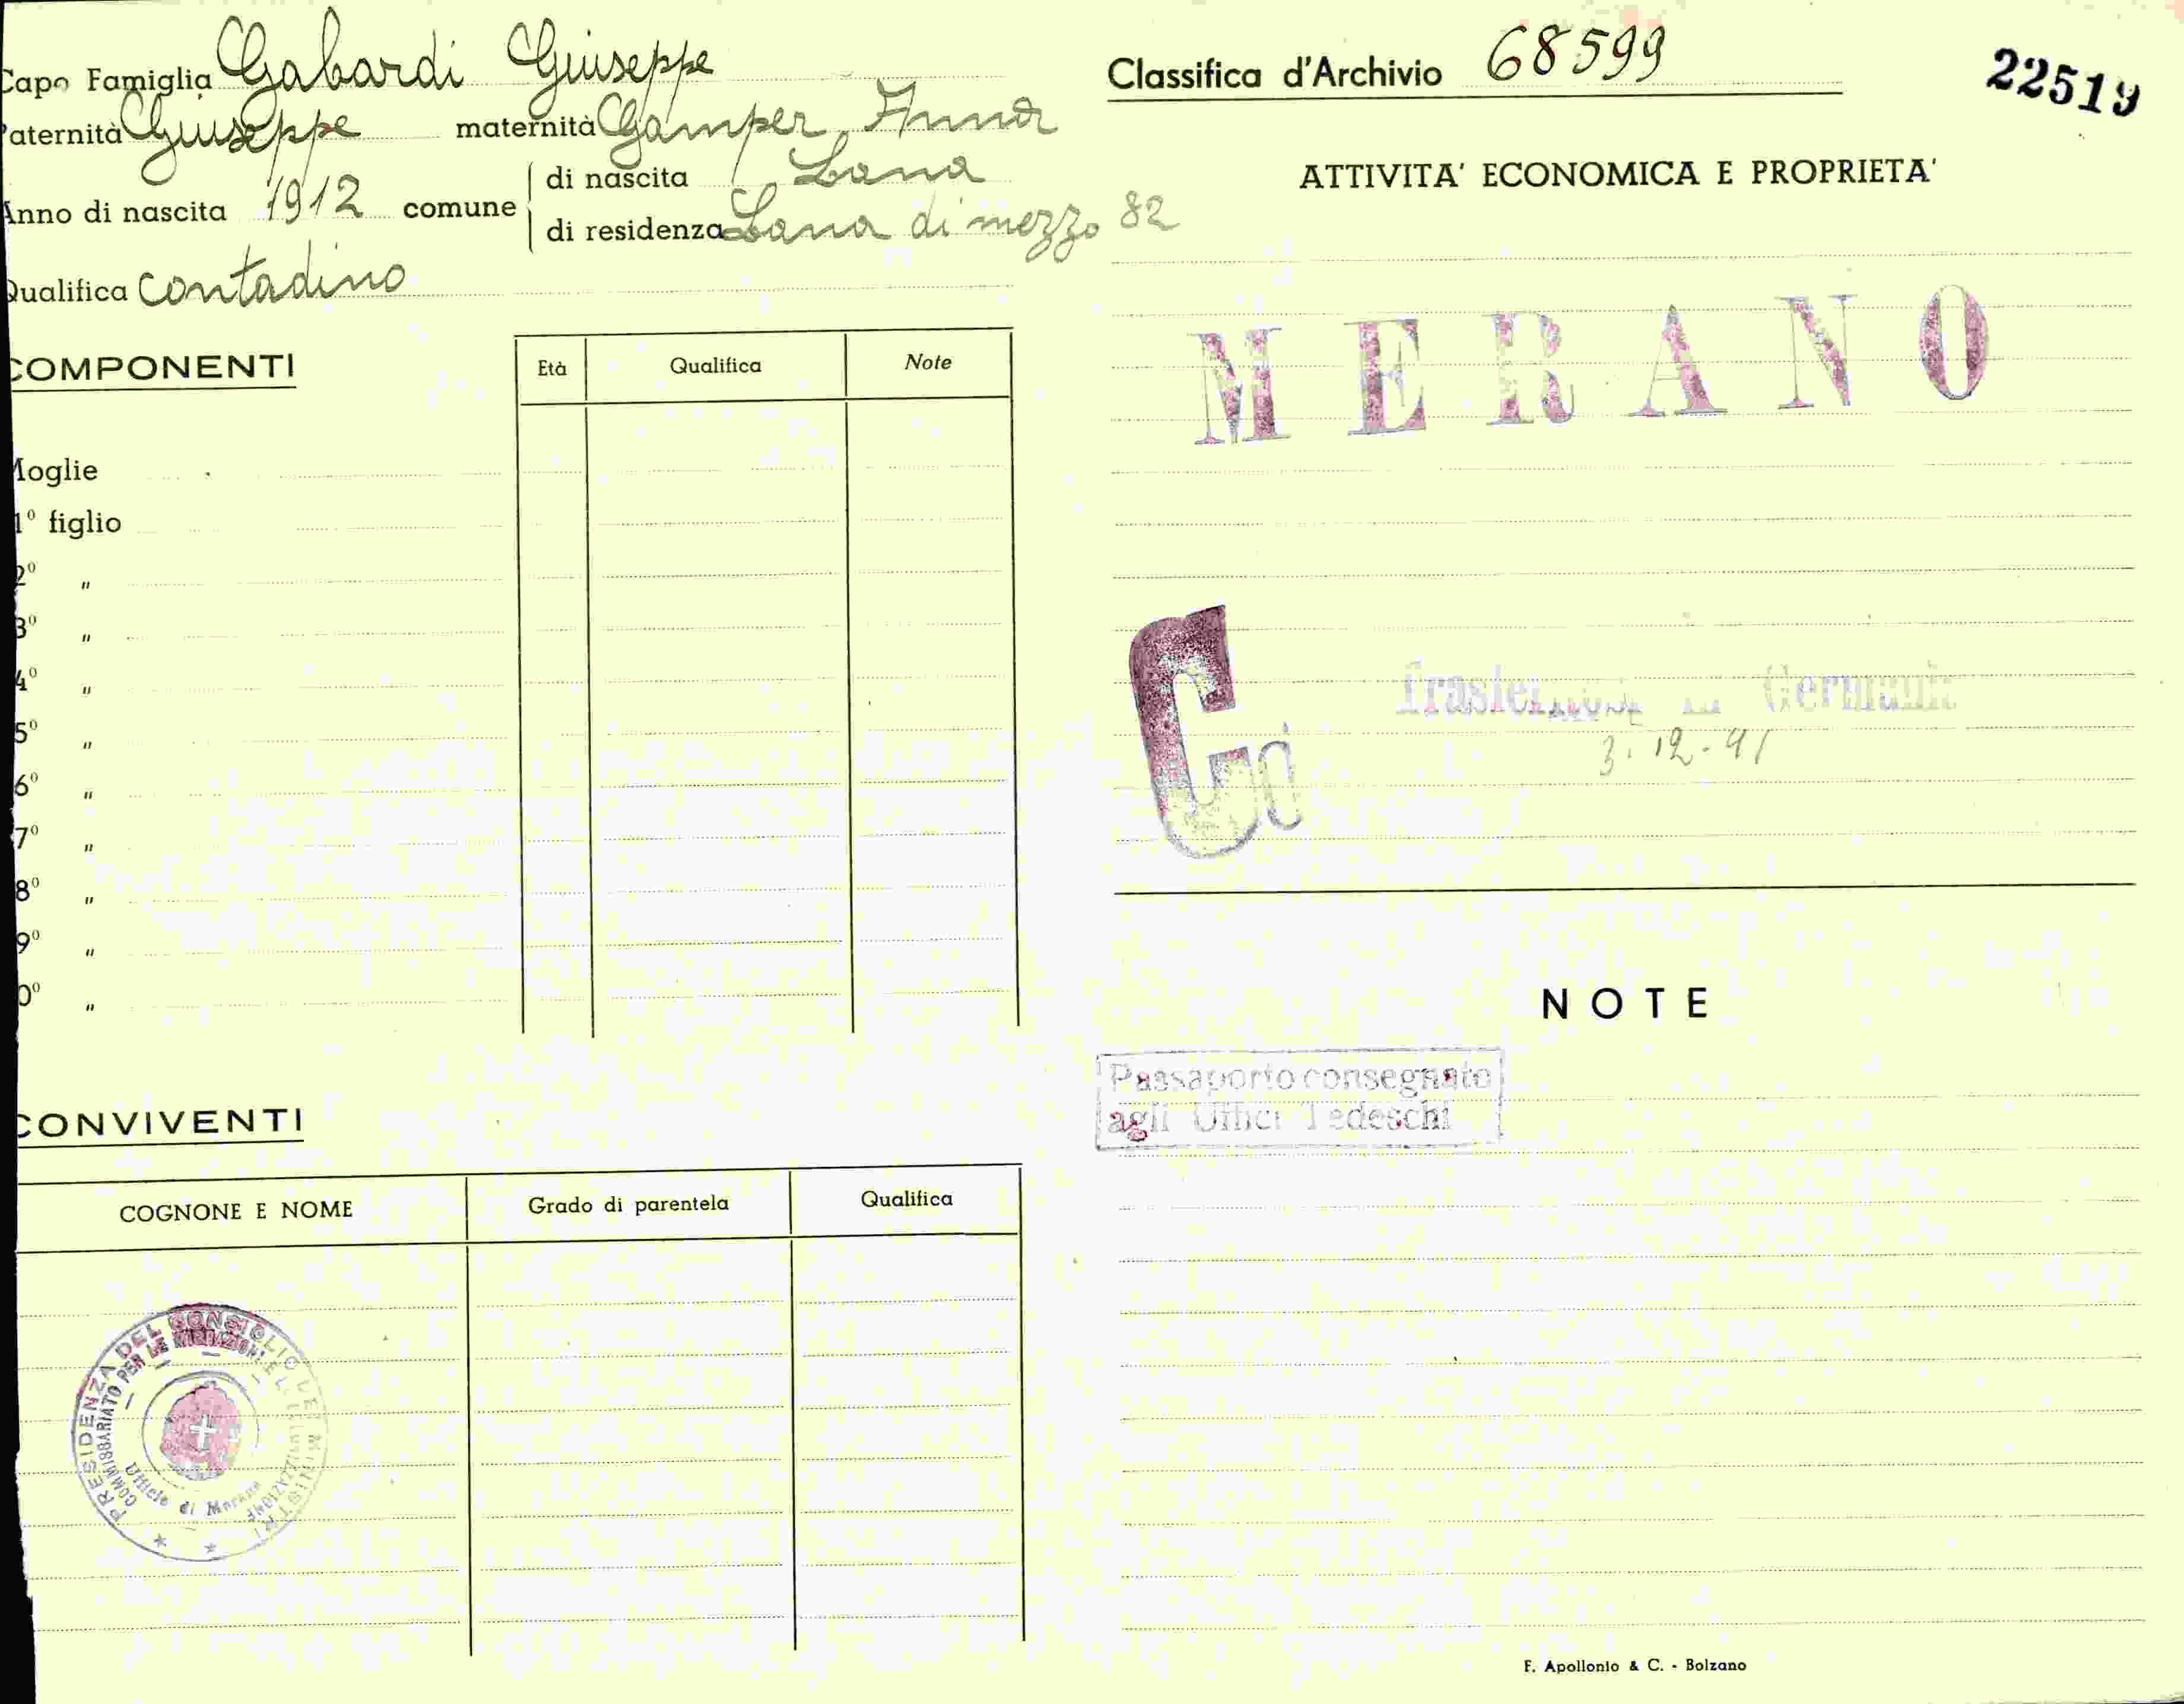 Capo Famiglia Gabardi Giuseppe
Paternità Giuseppe maternità Gamper Anna
Anno di nascita 1912 comune di nascita Lana
di residenza Lana di mezzo 82
Qualifica contadino
COMPONENTI
Età Qualifica Note
Moglie
1º figlio
2º "
3º "
4º "
5º "
6º "
7º "
8º "
9º "
0º "
CONVIVENTI
COGNONE E NOME Grado di parentela Qualifica
PRESIDENZA DEL CONSIGLIO DEI MINISTRI
COMMISSARIATO PER LE MIGRAZIONI E
Ufficio di Merano
Classifica d'Archivio 68599
22519
ATTIVITA' ECONOMICA E PROPRIETA'
MERANO
C
Germania
3.12-41
NOTE
Passaporto consegnato
agli Uffici Tedeschi
F. Apollonio & C. - Bolzano